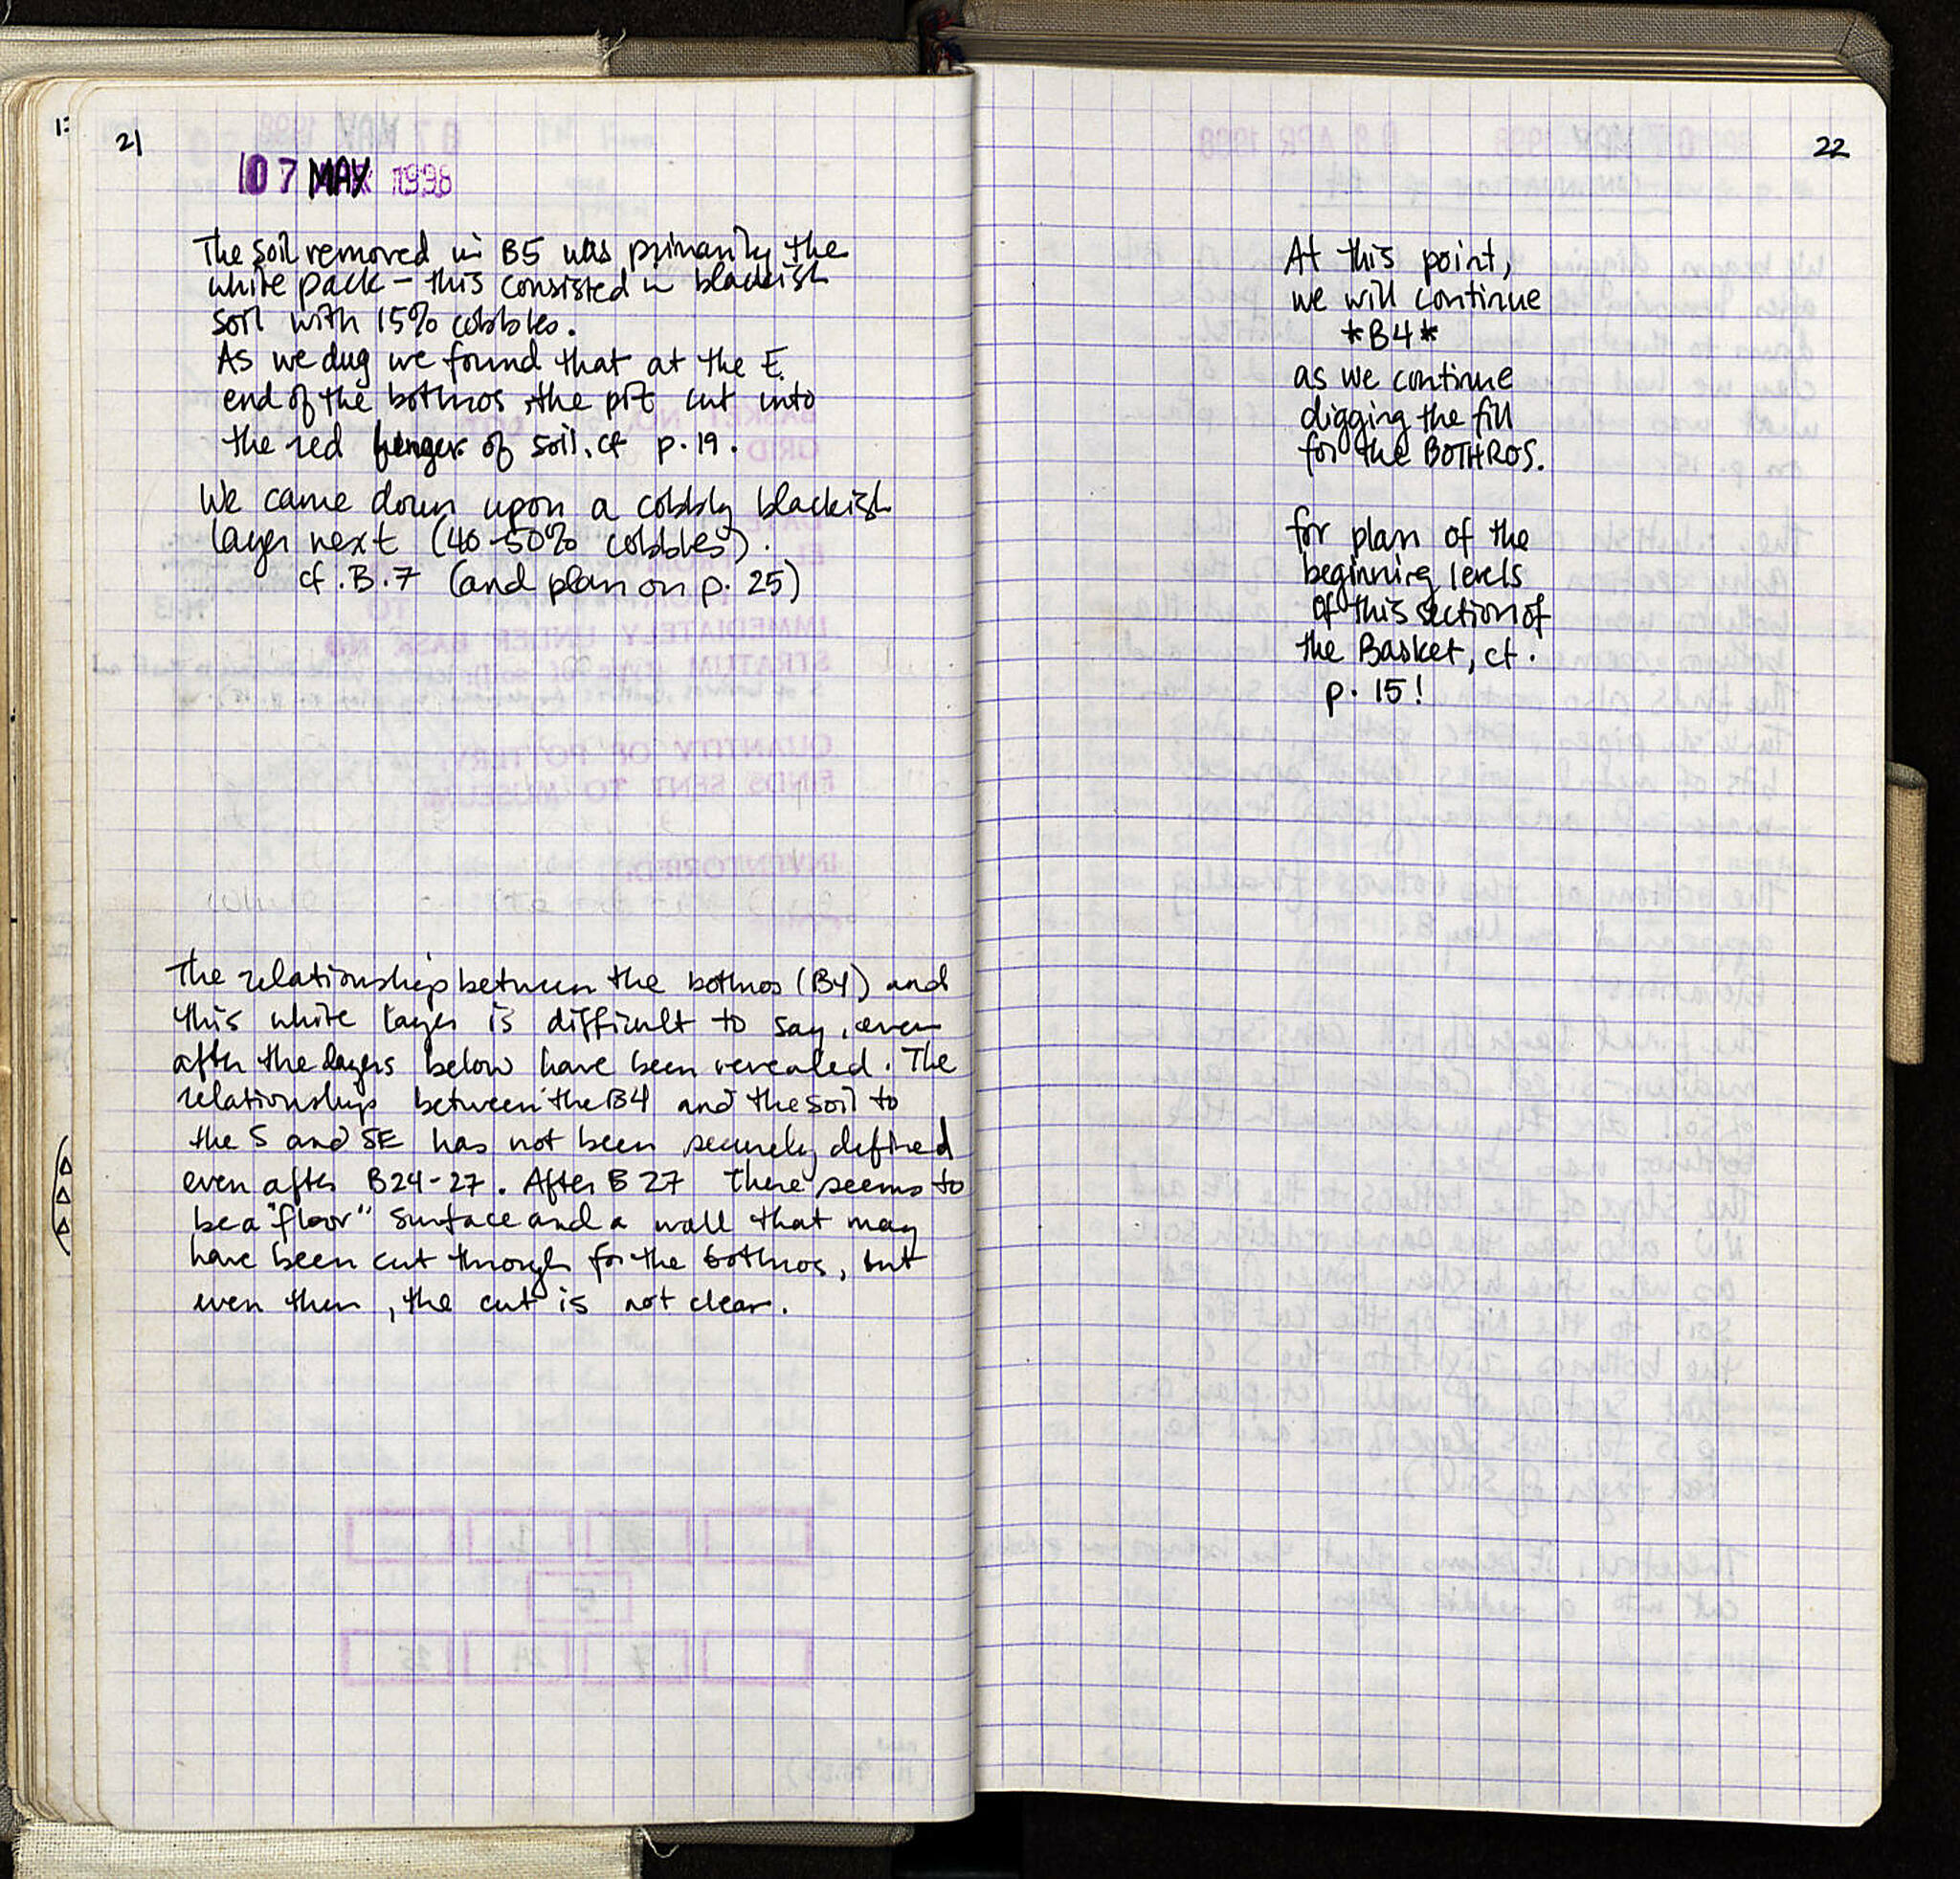 21
07 MAY 1998
The soil removed in B5 was primarily the
white pack – this consisted in blackish
soil with 15% cobbles.
As we dug we found that at the E.
end of the bothros, the pit cut into
the red finger of soil, cf p. 19.
We came down upon a cobbly blackish
layer next (40-50% cobbles).
cf. B.7 (and plan on p. 25)
The relationship between the bothros (B4) and
this white layer is difficult to say, even
after the layers below have been revealed. The
relationship between the B4 and the soil to
the S and SE has not been securely defined
even after B24-27. After B27 there seems to
be a "floor" surface and a wall that may
have been cut through for the bothros, but
even then, the cut is not clear.
22
At this point,
we will continue
*B4*
as we continue
digging the fill
for the BOTHROS.
for plan of the
beginning levels
of this section of
the Basket, cf.
p. 15!